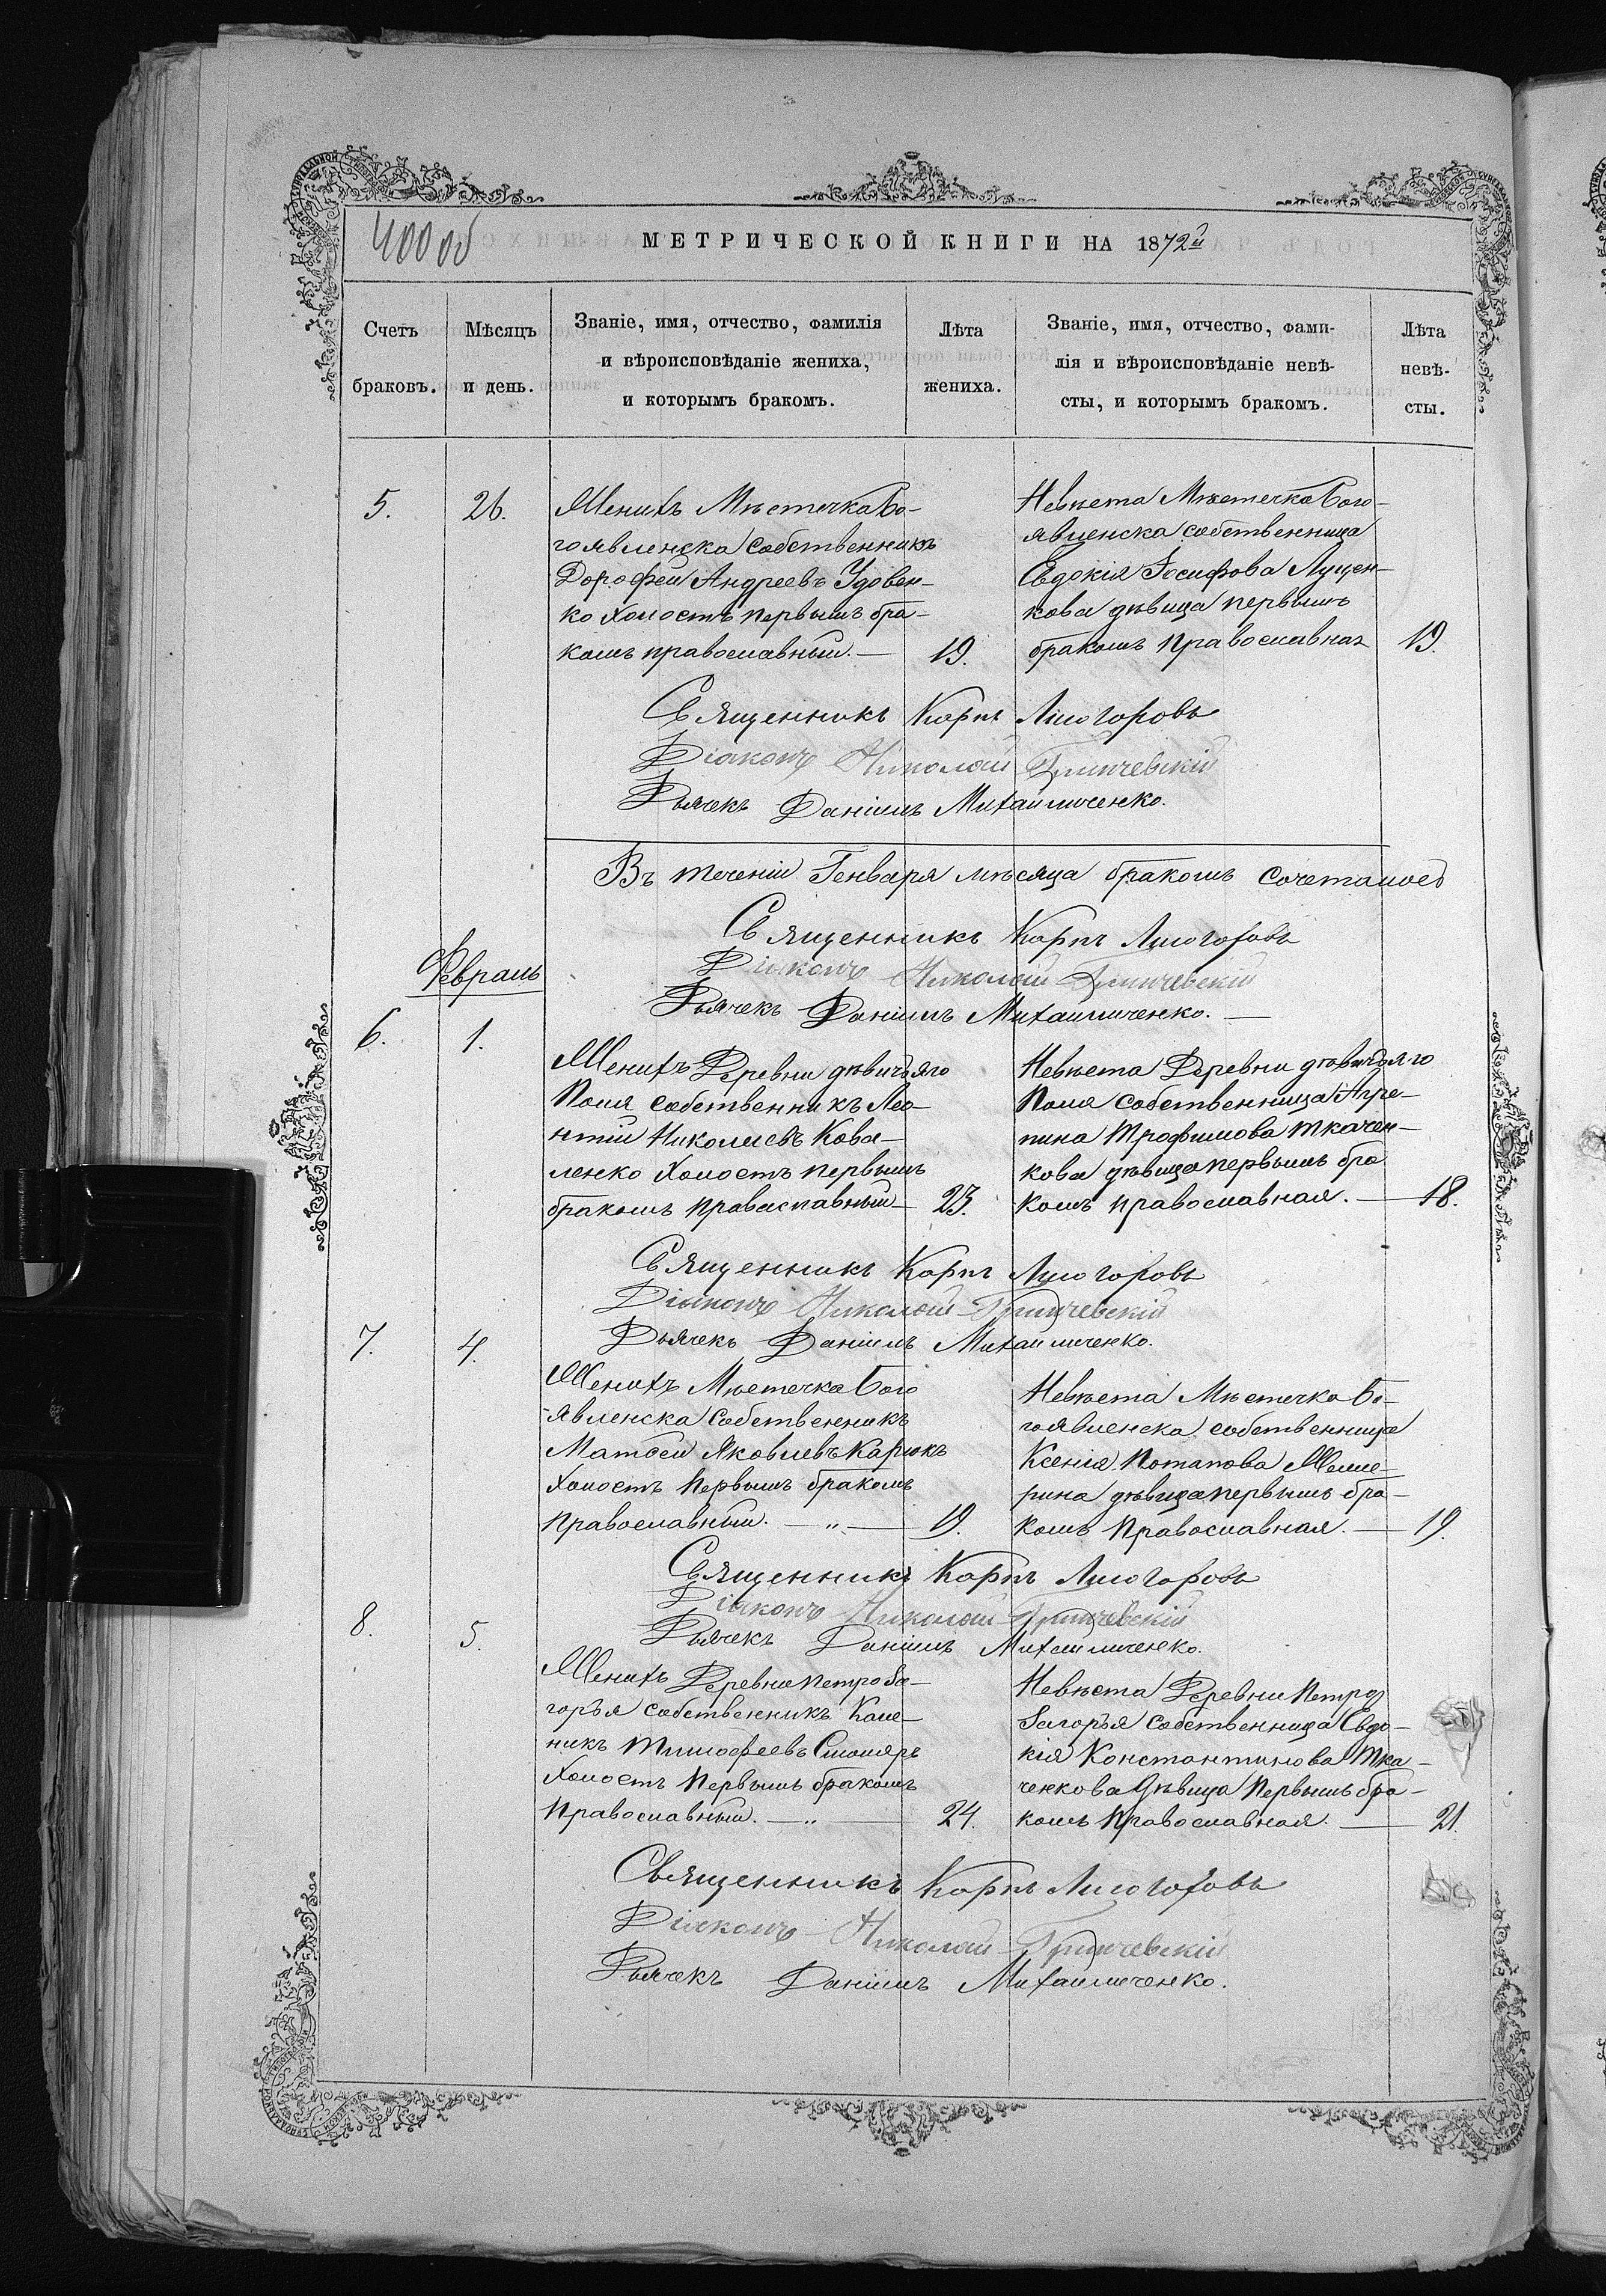 400 об
МЕТРИЧЕСКОЙ КНИГИ НА 1872й
Счетъ
браковъ.
Мѣсяцъ
и день.
Званіе, имя, отчество, фамилія
и вѣроисповѣданіе жениха,
и которымъ бракомъ.
Лѣта
жениха.
Званіе, имя, отчество, фами-
лія и вѣроисповѣданіе невѣ-
сты, и которымъ бракомъ.
Лѣта
невѣ-
сты.
5.
26.
Женихъ Мѣстечка Бо-
гоявленска собственникъ
Дорофей Андреевъ Удовен-
ко холостъ первымъ бра-
комъ православный. —
19.
Невѣста Мѣстечка Бого-
явленска собственница
Евдокія Іосифова Луцен-
кова дѣвица первымъ
бракомъ православная
19.
Священникъ Карпъ Лисогоровъ
Діаконъ Николай
Дьячекъ Даніилъ Михайличенко.
Въ теченіи Генваря мѣсяца бракомъ сочеталось
Священникъ Карпъ Лисогоровъ
Діаконъ Николай
Дьячекъ Даніилъ Михайличенко. —
Февраль
6.
1.
Женихъ Деревни дѣвичьяго
Поля собственникъ Лео-
нтій Николаевъ Кова-
ленко холостъ первымъ
бракомъ православный —
23.
Невѣста Деревни дѣвичьяго
Поля собственница Агре-
пина Трофимова Ткачен-
кова дѣвица первымъ бра
комъ православная. —
18.
Священникъ Карпъ Лисогоровъ
Діаконъ Николай
Дьячекъ Даніилъ Михайличенко.
7.
4.
Женихъ Мѣстечка Бого
-явленска собственникъ
Матвей Яковлевъ Карюкъ
холостъ первымъ бракомъ
православный. — „ —
19.
Невѣста Мѣстечка Бо-
гоявленска собственница
Ксенія Потапова
рина дѣвица первымъ бра-
комъ православная. —
19.
Священникъ Карпъ Лисогоровъ
Діаконъ Николай
Дьячекъ Даніилъ Михайличенко.
8.
5.
Женихъ Деревни Петро За-
горья собственникъ Кале-
никъ Тимофеевъ Столяръ
холостъ первымъ бракомъ
православный. — „ —
24.
Невѣста Деревни Петро
Загорья собственница Евдо-
кія Константинова Тка-
ченкова дѣвица первымъ бра-
комъ православная. —
21.
Священникъ Карпъ Лисогоровъ
Діаконъ Николай
Дьячекъ Даніилъ Михайличенко.